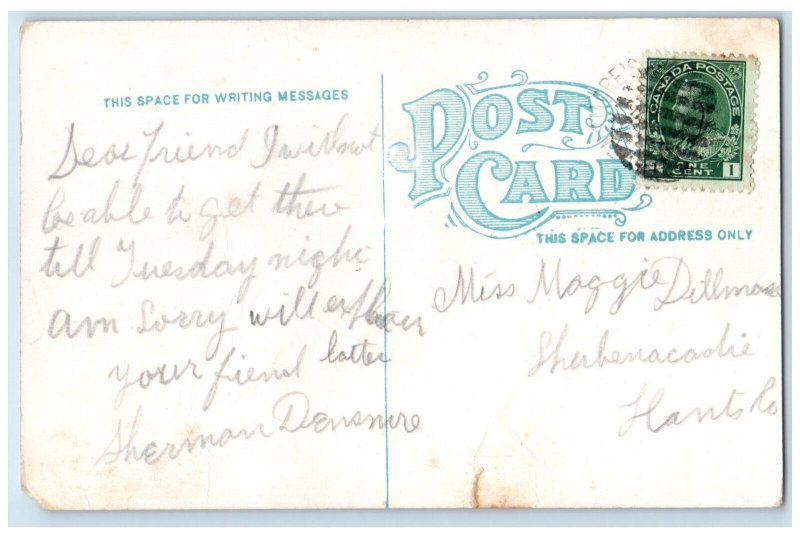 THIS SPACE FOR WRITING MESSAGES
Dear friend I will not
be able to get there
till Tuesday night
am Sorry will explain
latter
your friend
Sherman Densmore
POST CARD
CANADA POSTAGE
ONE CENT 1
THIS SPACE FOR ADDRESS ONLY
Miss Maggie Dillman
Shubenacadie
Hants Co